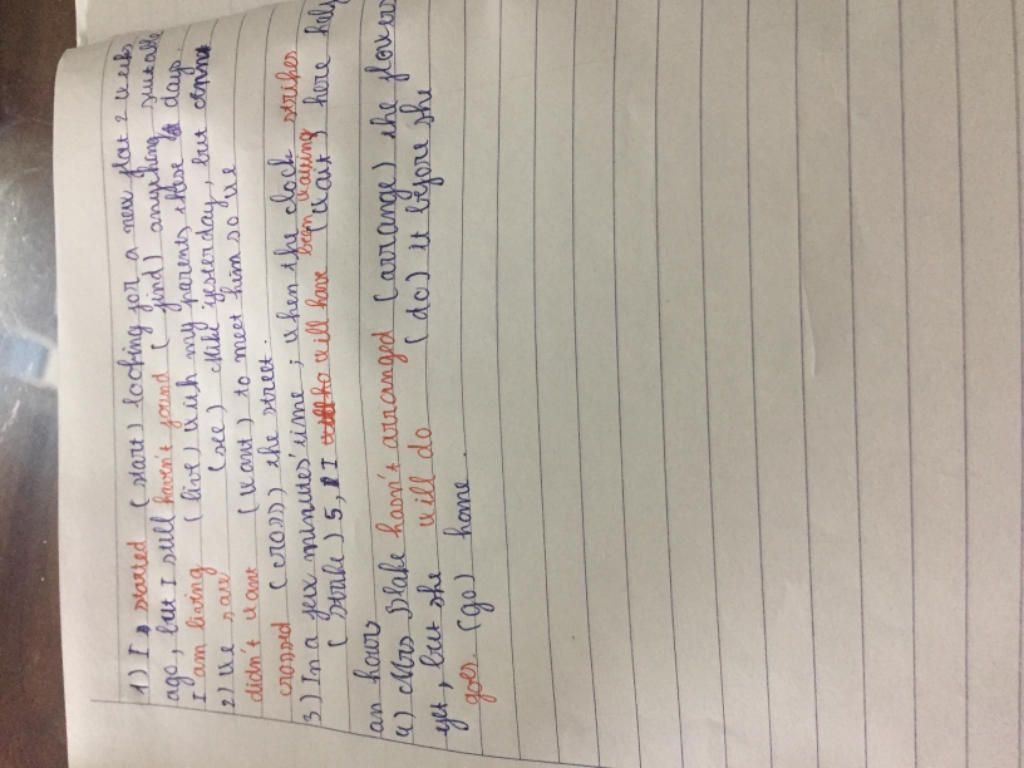 1) I started (start) looking for a new flat 2 weeks
ago, but I still haven't found (find) anything suitable
I am living (live) with my parents these days.
2) We saw (see) Mike yesterday, but
didn't want (want) to meet him so we
crossed (cross) the street.
3) In a few minutes' time, when the clock strikes
(strike) 5, I will have been waiting (wait) here
an hour
4) Mrs Blake hasn't arranged (arrange) the flowers
yet, but she will do (do) it before she
goes. (go) home.